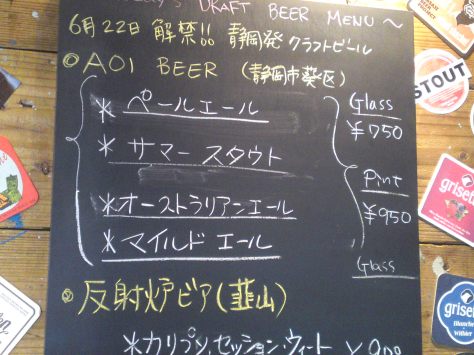 DRAFT BEER MENU ~
6月22日 解禁!! 静岡発 クラフトビール
◎ AOI BEER (静岡市葵区)
* ペールエール
* サマー スタウト
* オーストラリアンエール
* マイルド エール
Glass
¥750
Pint
¥950
Glass
◎ 反射炉ビア (韮山)
* カリプソ,セッション・ウィート
STOUT
grisette
grisette
Blanche
Witbier